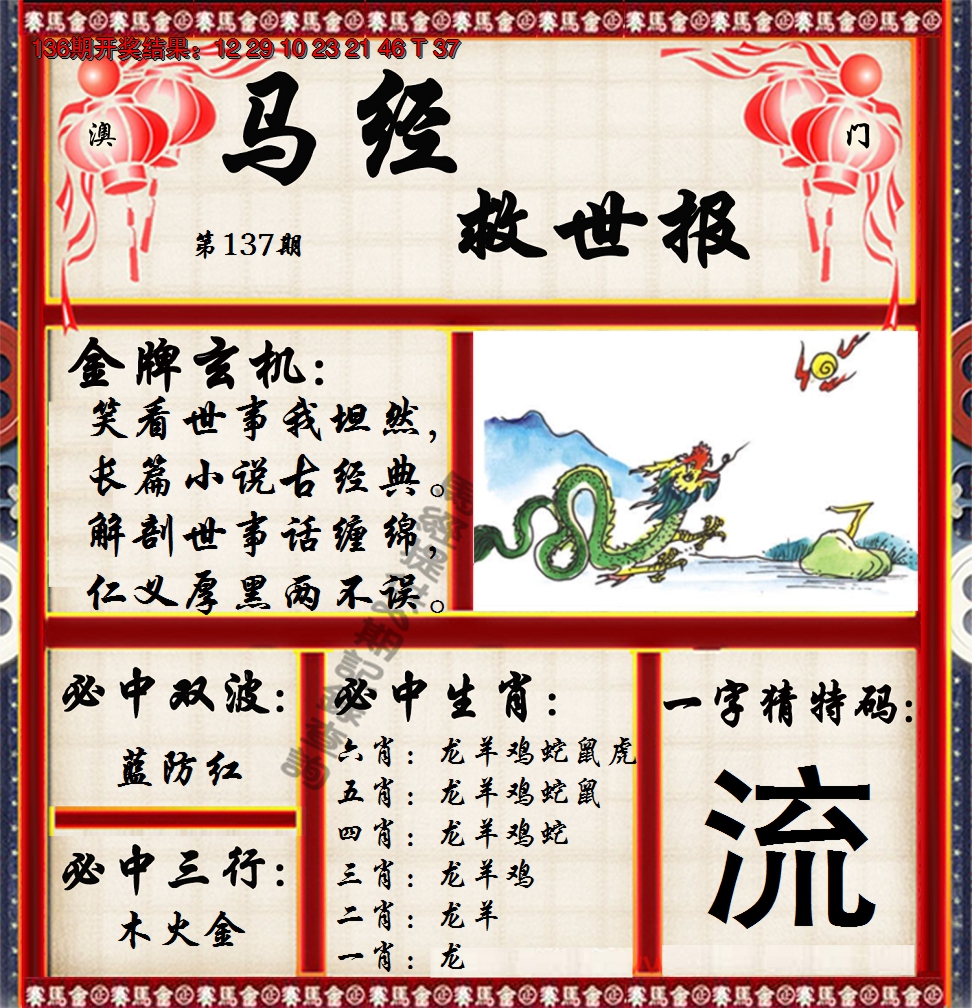 136期开奖结果：12 29 10 23 21 46 T 37
澳
门
马经
救世报
第137期
金牌玄机：
笑看世事我坦然，
长篇小说古经典。
解剖世事话缠绵，
仁义厚黑两不误。
必中双波：
蓝防红
必中三行：
木火金
必中生肖：
六肖：龙羊鸡蛇鼠虎
五肖：龙羊鸡蛇鼠
四肖：龙羊鸡蛇
三肖：龙羊鸡
二肖：龙羊
一肖：龙
一字猜特码：
流